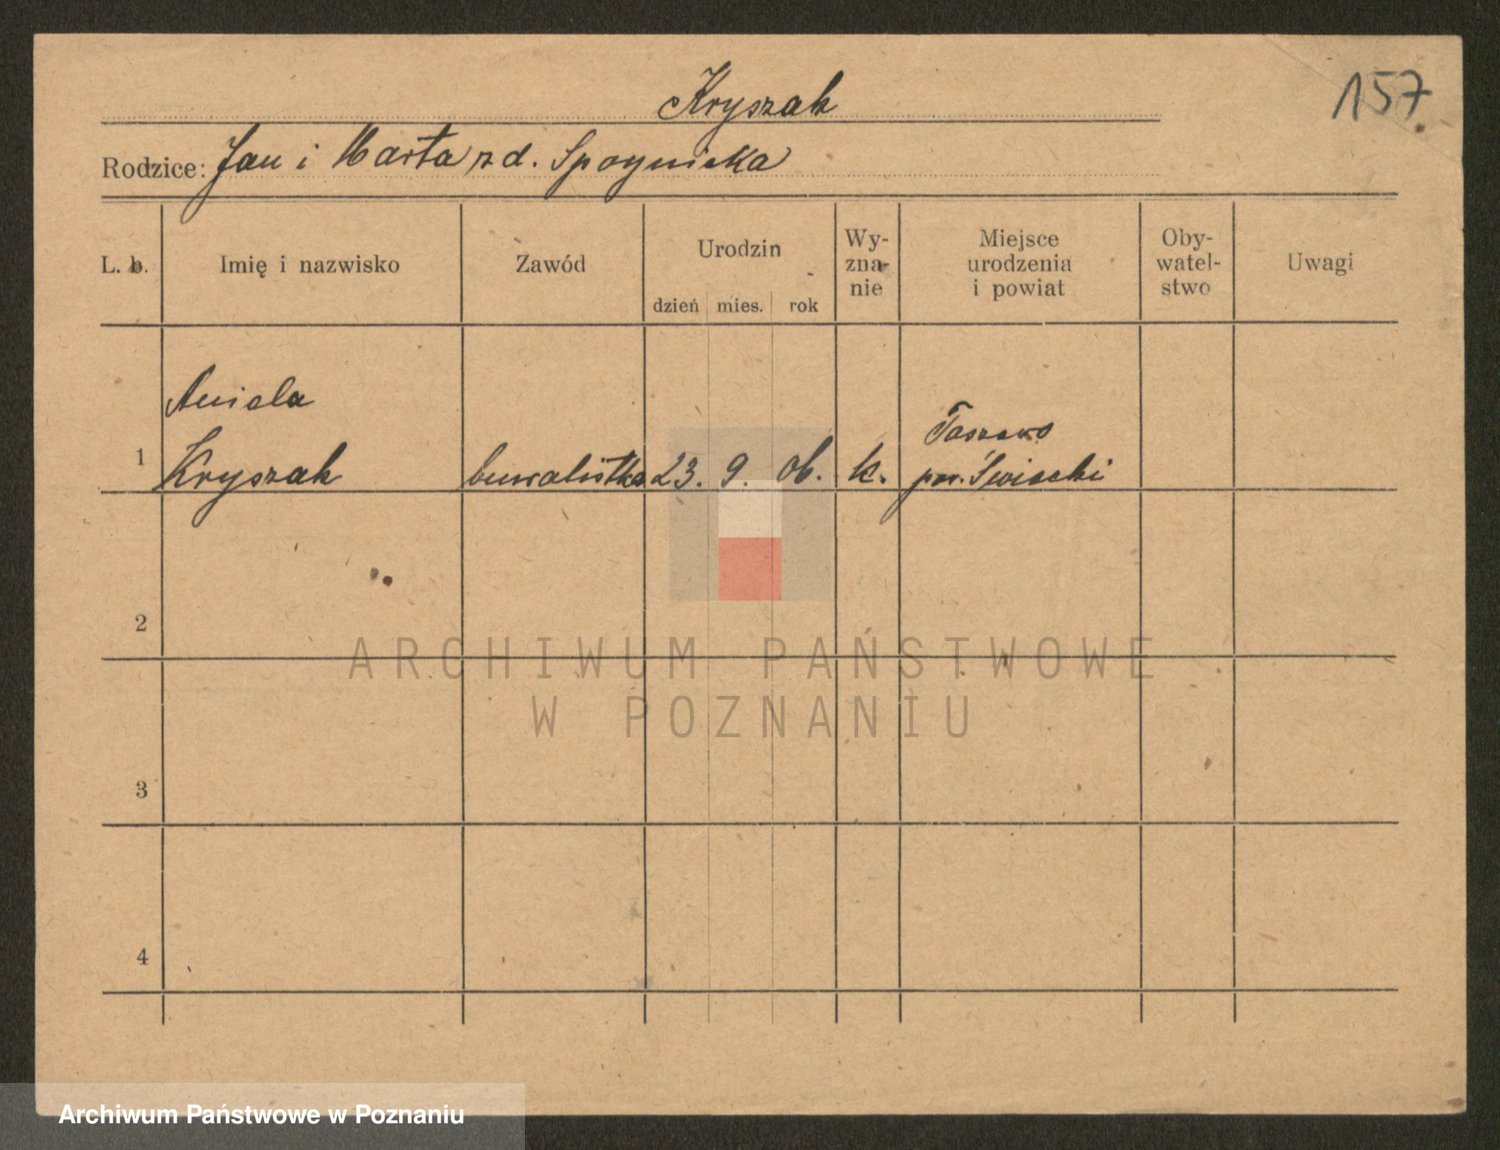 Kryszak
157
Rodzice: Jan i Marta z d. Spoynicka
L. b.
Imię i nazwisko
Zawód
Urodzin
dzień mies. rok
Wy-
zna-
nie
Miejsce
urodzenia
i powiat
Oby-
watel-
stwo
Uwagi
1
Aniela
Kryszak
buralistka
23. 9. 06.
k.
Taszewo
pow. Świecki
2
3
4
ARCHIWUM PAŃSTWOWE
W POZNANIU
Archiwum Państwowe w Poznaniu